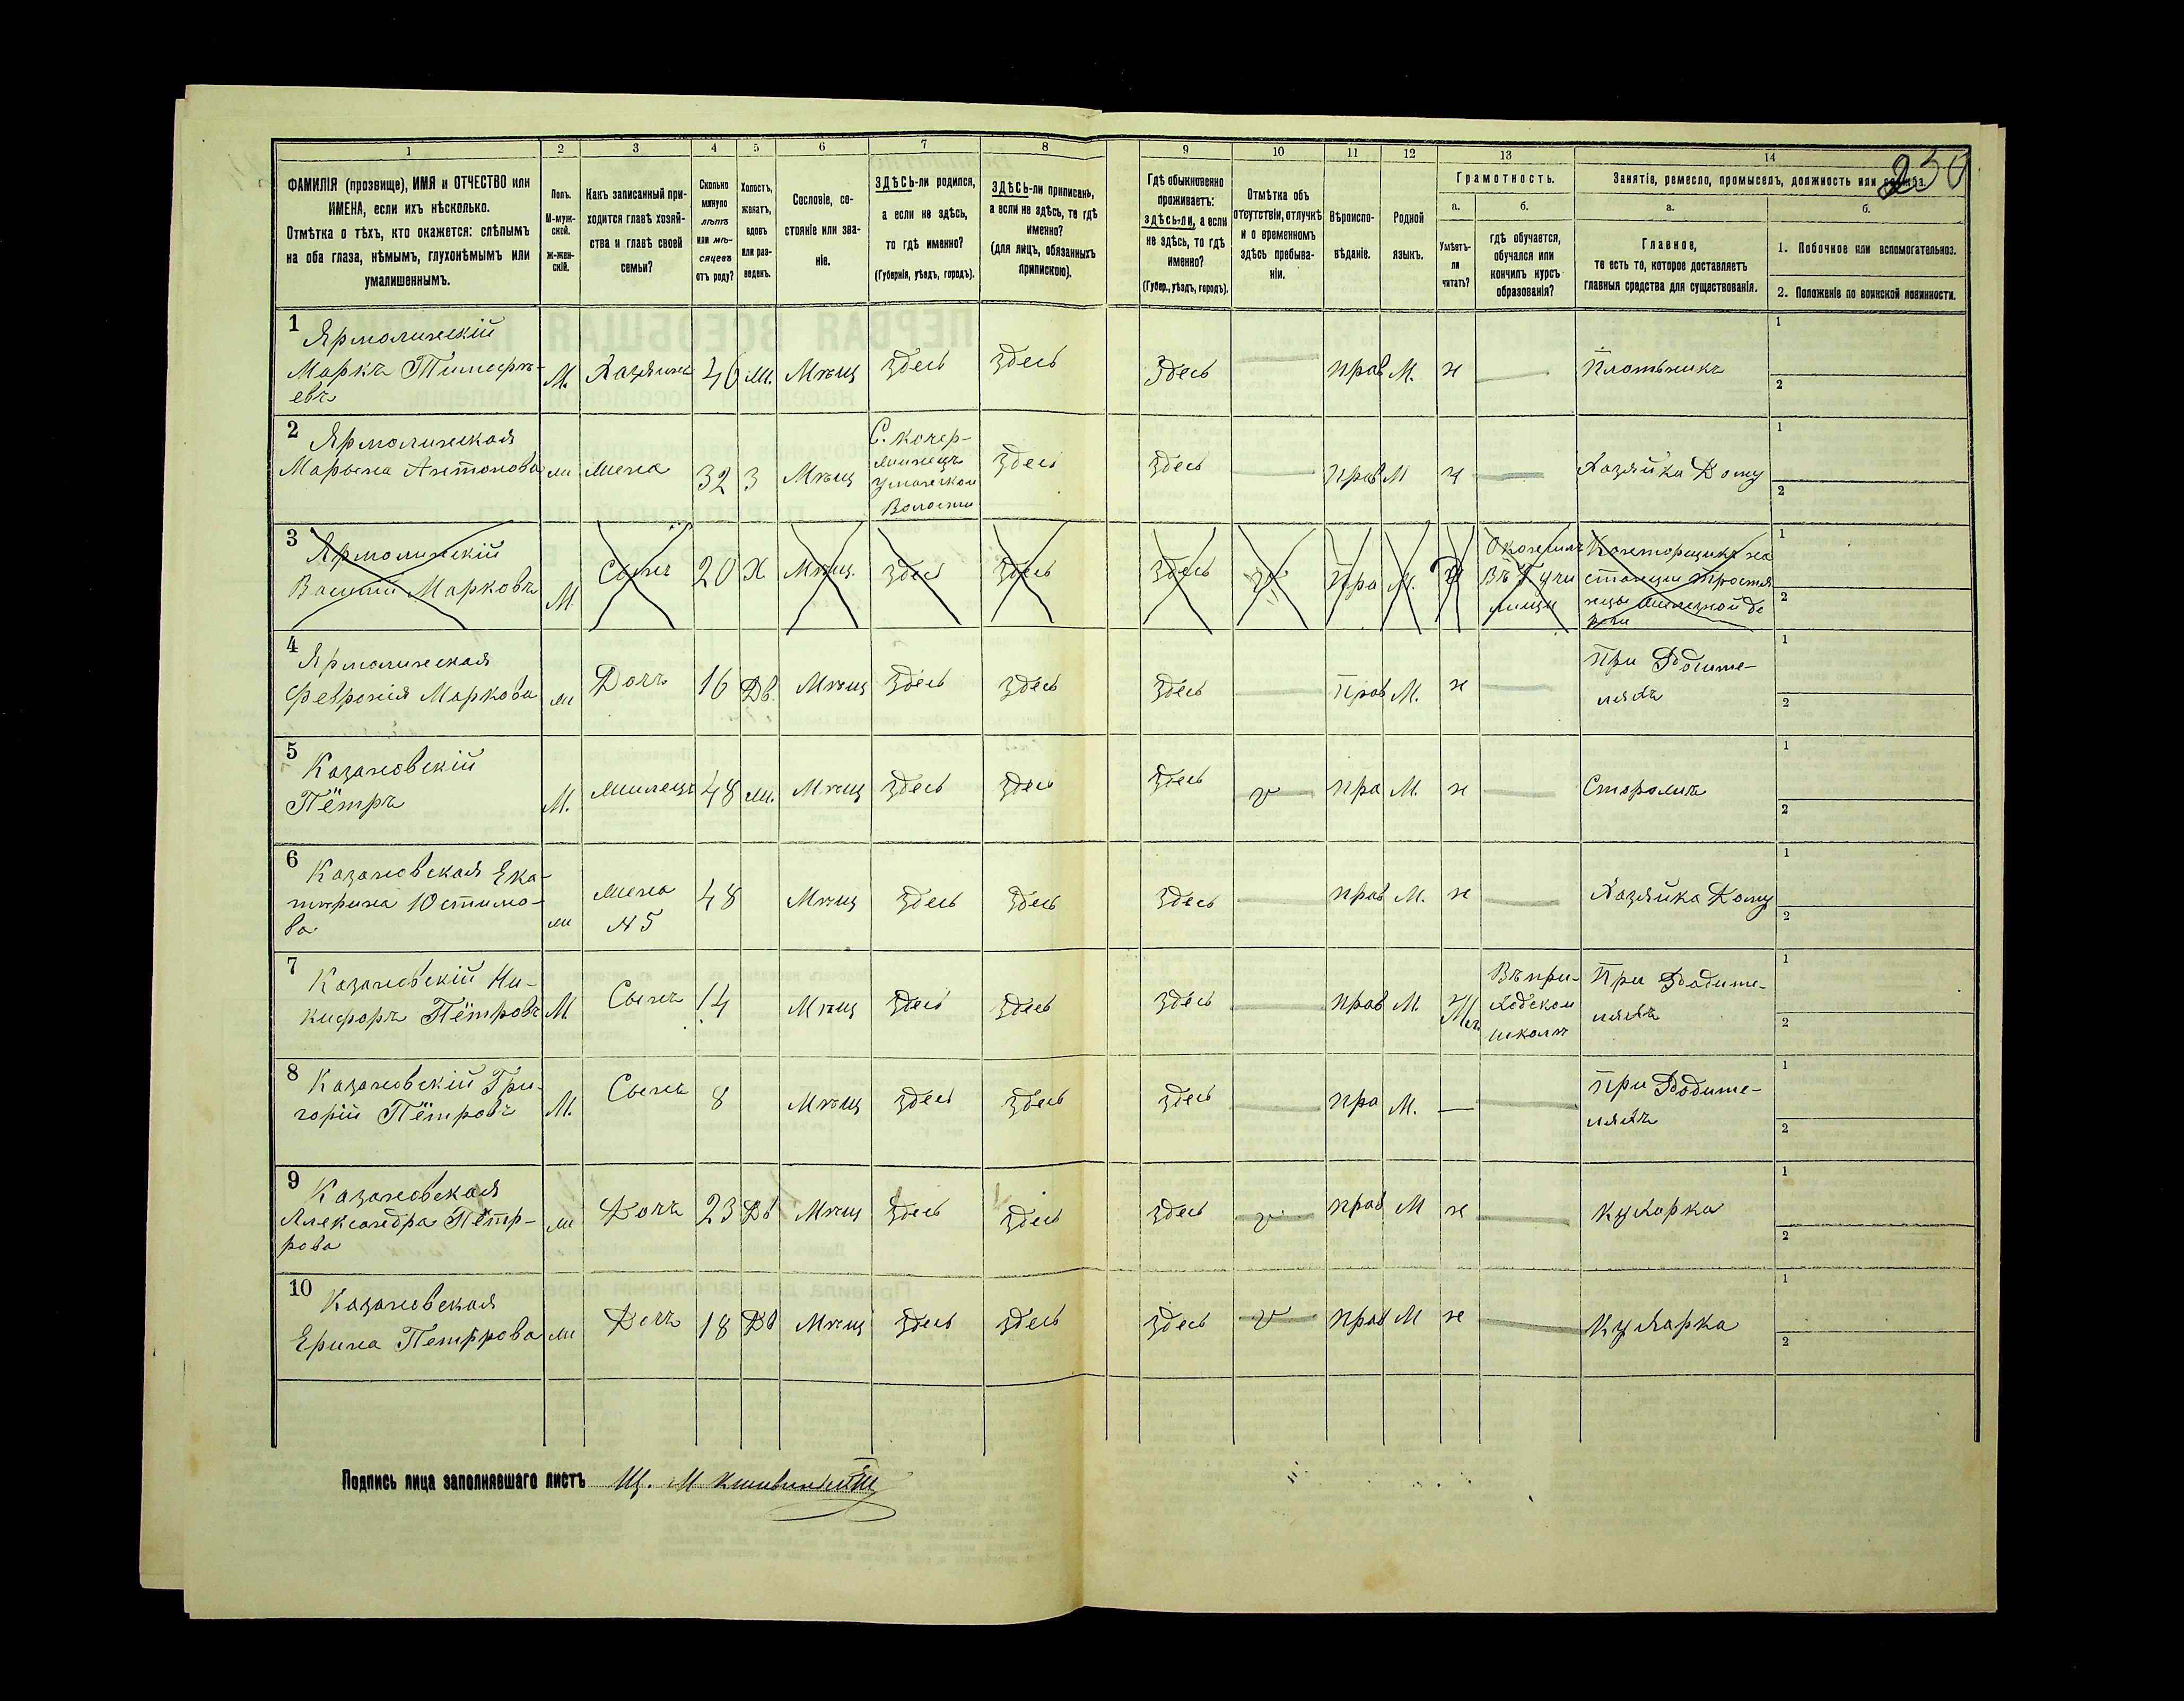 230
1
2
3
4
5
6
7
8
9
10
11
12
13
14
ФАМИЛІЯ (прозвище), ИМЯ и ОТЧЕСТВО или
ИМЕНА, если ихъ нѣсколько.
Отмѣтка о тѣхъ, кто окажется: слѣпымъ
на оба глаза, нѣмымъ, глухонѣмымъ или
умалишеннымъ.
Полъ.
М-муж-
ской.
ж-жен-
скій.
Какъ записанный при-
ходится главѣ хозяй-
ства и главѣ своей
семьи?
Сколько
минуло
лѣтъ
или мѣ-
сяцевъ
отъ роду?
Холостъ,
женатъ,
вдовъ
или раз-
веденъ.
Сословіе, со-
стояніе или зва-
ніе.
ЗДѢСЬ-ли родился,
а если не здѣсь,
то гдѣ именно?
(Губернія, уѣздъ, городъ).
ЗДѢСЬ-ли приписанъ,
а если не здѣсь, то гдѣ
именно?
(для лицъ, обязанныхъ
припискою).
Гдѣ обыкновенно
проживаетъ:
здѣсь-ли, а если
не здѣсь, то гдѣ
именно?
(Губер., уѣздъ, городъ).
Отмѣтка объ
отсутствіи, отлучкѣ
и о временномъ
здѣсь пребыва-
ніи.
Вѣроиспо-
вѣданіе.
Родной
языкъ.
Грамотность.
а.
Умѣетъ-
ли
читать?
б.
гдѣ обучается,
обучался или
кончилъ курсъ
образованія?
Занятіе, ремесло, промыселъ, должность или служба.
а.
Главное,
то есть то, которое доставляетъ
главныя средства для существованія.
б.
1. Побочное или вспомогательное.
2. Положеніе по воинской повинности.
1
Ярмолинскій
Маркъ
евъ
М. Хазяинъ 46 ж. Мѣщ здесь здесь Здесь прав М. н Плотникъ
1
2
2
Ярмолинская
Марьяна Антонова
ж жена 32 З Мѣщ
С. кочер-
жинецъ
уманской
Волости
здесь здесь прав М н Хазяйка Дому
1
2
3
Ярмолинскій
Василій Марковъ
М Сынъ 20 Х Мѣщ. здесь здесь здесь пра М.
лище
1
2
4
Ярмолинская
Февронія Маркова
ж Дочъ 16 Дв. Мѣщ здесь здесь здесь прав М. н
при Родите-
ляхъ
1
2
5
Казановскій
Пётръ
М. жилецъ 48 ж. Мѣщ здесь здесь здесь v пра М. н Сторожъ
1
2
6
Казановская Ека-
тѣрина Юстимо-
ва
ж
жена
N 5
48 Мѣщ здесь здесь здесь прав М. н Хазяйка Дому
1
2
7
Казановскій Ни-
кифоръ Пётровъ
М Сынъ 14 Мѣщ здесь здесь здесь прав М.
Въ при-
ходском
школѣ
При Родите-
ляхъ
1
2
8
Казановскій Гри-
горій Пётровъ
М. Сынъ 8 Мѣщ здесь здесь здесь пра М. —
при Родите-
ляхъ
1
2
9
Казановская
Александра Пётр-
рова
ж Дочъ 23 Дв Мѣщ здесь здесь здесь v прав М н кухарка
1
2
10
Казановская
Ерина Петррова
ж Дочъ 18 Дв Мѣщ здесь здесь здесь v прав М н кухарка
1
2
Подпись лица заполнявшаго листъ